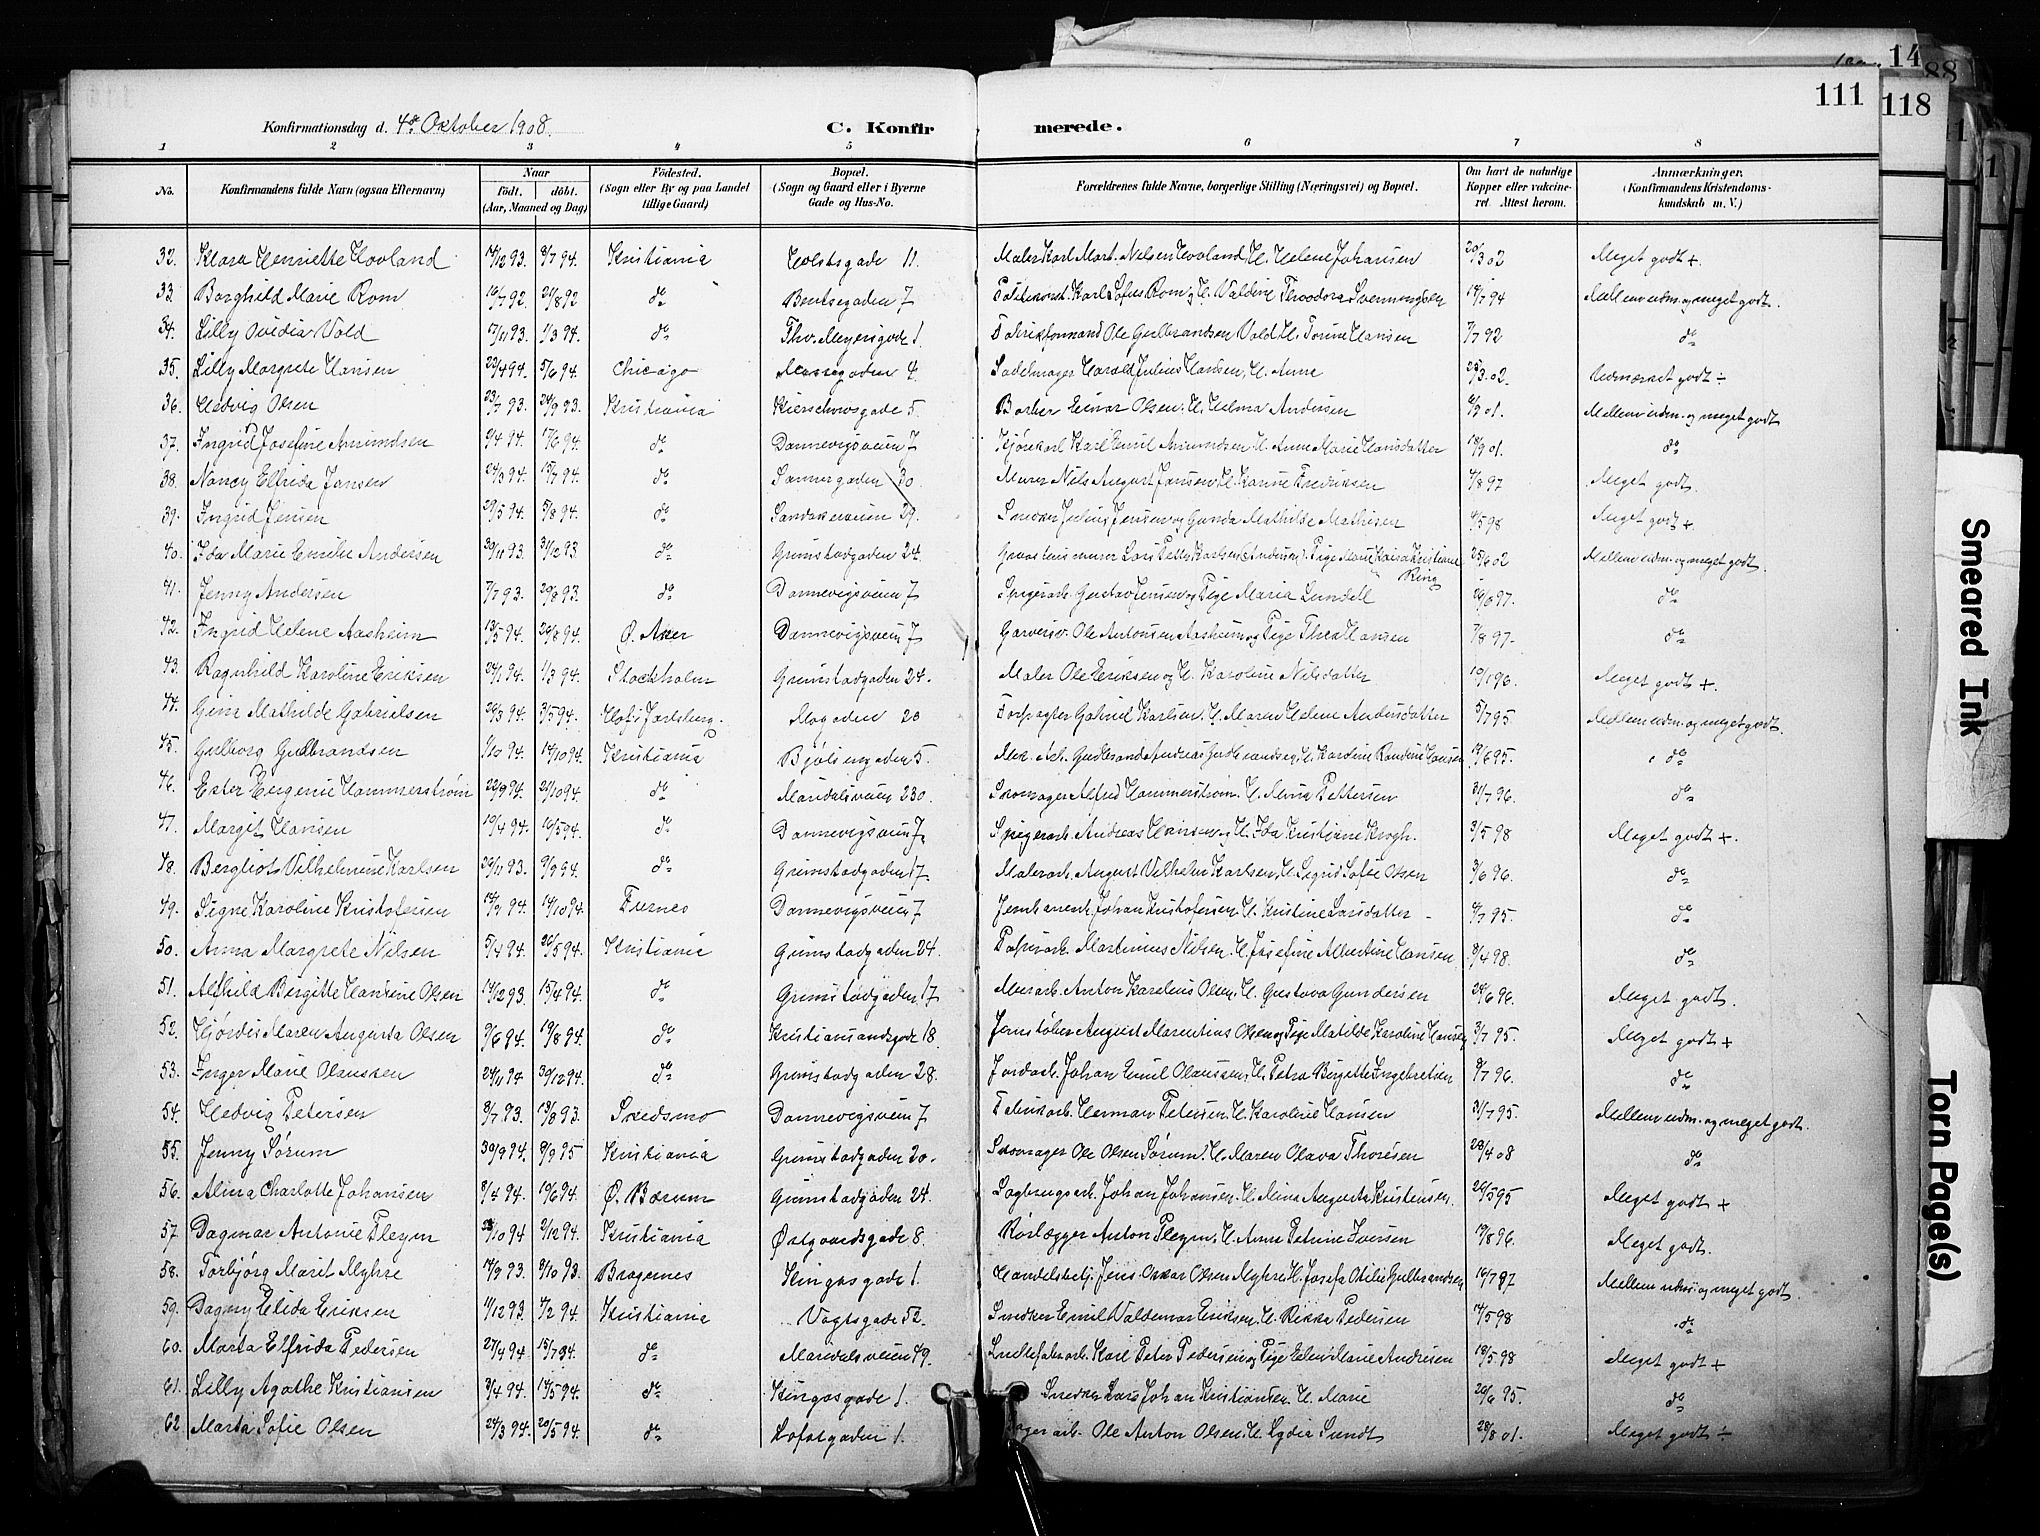 14
88
111
118
Konfirmationsdag d. 4de Oktober 1908.
C. Konfir merede.
1 2 3 4 5 6 7 8
No.
Konfirmandens fulde Navn (ogsaa Efternavn)
Naar født. døbt. (Aar, Maaned og Dag)
Fødested. (Sogn eller By og paa Landet tillige Gaard)
Bopæl. (Sogn og Gaard eller i Byerne Gade og Hus-No.
Forældrenes fulde Navne, borgerlige Stilling (Næringsvei) og Bopæl.
Om havt de naturlige Kopper eller vaccineret. Attest herom.
Anmærkninger. (Konfirmandens Kristendomskundskab m. V.)
32. Klara Henriette Hovland 14/12 93. 8/7 94. Kristiania Holstsgade 11. Maler Karl Mart. Nilsen Hovland, H. Helene Johansen 20/3 02 Meget godt +.
33. Borghild Marie Rom 16/7 92. 21/8 92 do Bentsegaden 7 Karl Sofus Rom og H. Valdine Theodora Svenningsen 14/7 94 Mellem udm. og meget godt.
34. Lilly Ovidia Vold 17/11 93. 1/3 94. do Thv. Meyersgade 1. Fabrikformand Ole Gulbrandsen Vold H. Torine Hansen 7/7 92 do
35. Lilly Margrete Hansen 22/4 94. 5/6 94. Chicago 4. Sadelmager Harald Julius Hansen, H. Anne 25/3 02. Udmærket godt ÷
36. Hedvig Olsen 23/7 93. 24/9 93. Kristiania Kierschowsgade 5. Barber Einar Olsen. H. Helma Andersen 6/9 01. Mellem udm. og meget godt
37. Ingrid Josefine Amundsen 9/4 94. 17/6 94. do Dannevigsveien 7 Kjørekarl Karl Emil Amundsen H. Anne Marie Hansdatter 18/9 01. do
38. Nancy Elfrida Jansen 24/3 94. 15/7 94. do Sannergaden 30. Murer Nils August Jansen, H. Karine Fredriksen 4/8 97 Meget godt.
39. Ingrid Jensen 29/5 94. 5/8 94. do Sandakerveien 29. Snedker Julius Jensen og Gunda Mathilde Mathisen 4/5 98 Meget godt +.
40. Ida Marie Emilie Andersen 30/11 93. 31/12 93. do Grimstadgaden 24. Lars Petter Karlsen (Andersen). Pige Marie Kaisa Kristiane Ring 25/6 02 Mellem udm. og meget godt.
41. Jenny Andersen 7/7 93. 20/8 93. do Dannevigsveien 7 Spigerarb. Gustav Jensen og Pige Maria Lundell 26/6 97. do
42. Ingrid Helene Aasheim 13/5 94. 26/8 94. Ø. Aker Dannevigsveien 7 Garversv. Ole Antonsen Aasheim og Pige Thea Hansen 7/8 97. do
43. Ragnhild Karoline Eriksen 24/1 94. 1/3 94. Stockholm Grimstadgaden 24. Maler Ole Eriksen og H. Karoline Nilsdatter 10/1 96. Meget godt +.
44. Gina Mathilde Gabrielsen 26/3 94. 3/5 94. Hof i Jarlsberg. Mogaden 20 Forpagter Gabriel Karlsen. H. Maren Helene Andersdatter 5/7 95 Mellem udm. og meget godt.
45. Gulborg Gulbrandsen 1/10 94. 14/10 94. Kristiania Bjølsengaden 5. Gulbrand Andreas Gulbrandsen, H. Karoline Randine Hansen 19/6 95. do
46. Ester Eugenie Hammerstrøm 22/9 94. 21/10 94. do Maridalsveien 230. Skomager Alfred Hammerstrøm. H. Alma Pettersen 31/7 96. do
47. Margit Hansen 10/4 94. 16/5 94. do Dannevigsveien 7. Spigerarb. Andreas Hansen og H. Ida Kristiane Krogh. 3/5 98 Meget godt +.
48. Bergliot Vilhelmine Karlsen 26/11 93. 9/9 94. do Grimstadgaden 17. Malerarb. August Vilhelm Karlsen, H. Sigrid Sofie Olsen 3/6 96. do
49. Signe Karoline Kristofersen 14/9 94. 14/10 94. Furnes Dannevigsveien 7 Johan Kristofersen. H. Kristine Larsdatter 4/7 95. do
50. Anna Margrete Nilsen 5/4 94. 26/5 94. Kristiania Grimstadgaden 24. Papirarb. Martinius Nilsen. H. Josefine Albertine Hansen. 8/4 98. do
51. Alfhild Birgitte Hansine Olsen 14/12 93. 15/4 94. do Grimstadgaden 17 Murarb. Anton Karelius Olsen, H. Gustava Gundersen 24/6 96. Meget godt.
52. Hjørdis Maren Augusta Olsen 9/6 94. 19/8 94. do Kristiansandsgade 18. Jernstøber August Marentius Olsen og Pige Matilde Karoline Hansen 3/7 95. Meget godt +
53. Inger Marie Olaussen 24/11 94 30/12 94. do Grimstadgaden 28. Jordarb. Johan Emil Olaussen, H. Petra Birgitte Ingebretsen 8/7 96. do
54. Hedvig Petersen 3/7 93. 13/8 93. Skedsmo Dannevigsveien 7 Fabrikarb. Herman Petersen. H. Karoline Hansen 31/7 95. Mellem udm. og meget godt.
55. Jenny Sørum 30/9 94. 8/9 95 Kristiania Grimstadgaden 20. Skomager Ole Olsen Sørum. H. Maren Olava Thoresen 28/4 08 do
56. Alma Charlotte Johansen 8/4 94. 10/6 94. Ø. Bærum Grimstadgaden 24. Sagbrugsarb. Johan Johansen. H. Mina Augusta Kristensen. 26/5 95 Meget godt +
57. Dagmar Antonie Pleym /10 94 2/12 94. Kristiania Østgaardsgade 8. Rørlægger Anton Pleym. H. Anne Petrine Iversen 19/8 96. Meget godt.
58. Torbjørg Marit Myhre 14/9 93. 8/10 93. Bragernes Kingosgade 1. Handelsbetj. Jens Oskar Olsen Myhre. H. Josefa Otilie Gulbrandsen 16/7 87 Mellem udm. og meget godt.
59. Dagny Elida Eriksen 11/12 93. 4/2 94. Kristiania Vogtsgade 52. Snedker Emil Valdemar Eriksen, H. Rikka Pedersen 14/5 98 do
60. Marta Elfrida Pedersen 27/4 94. 15/7 94. do Maridalsveien 49. Karl Peter Pedersen og Pige Elen Marie Andresen 18/5 98 Meget godt +
61. Lilly Agathe Kristiansen 3/4 94. 14/5 94. do Kingosgade 1. Snedker Lars Johan Kristiansen. H. Marie 20/6 95. do
62 Marta Sofie Olsen 24/3 94. 20/5 94. do Tofotgaden 1. Ole Anton Olsen. H. Lydia Sundt 28/8 01. Meget godt ÷
Smeared Ink
Torn Page(s)